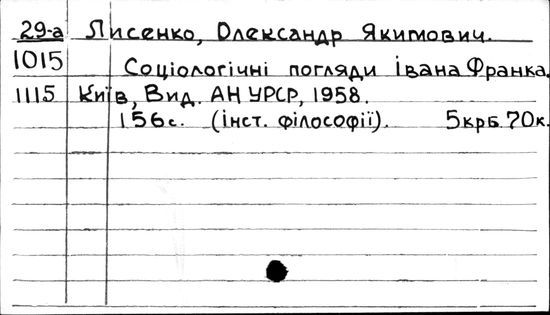 29-а Лисенко, Олександр Якимович.
1015 Соціологічні погляди Івана Франка.
1115 Київ, Вид. АН УРСР, 1958.
156с. (інст. філософії). 5крб. 70к.